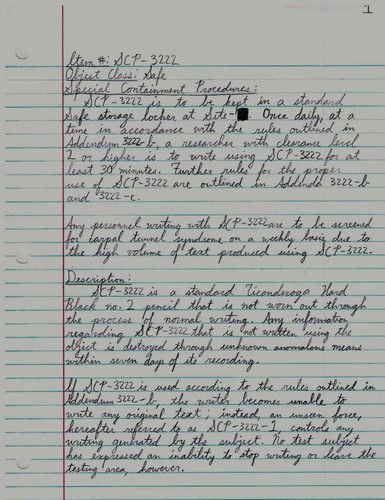 1
Item #: SCP-3222
Object Class: Safe
Special Containment Procedures:
SCP-3222 is to be kept in a standard
Safe storage locker at Site-█. Once daily, at a
time in accordance with the rules outlined in
Addendum 3222-b, a researcher with clearance level
2 or higher is to write using SCP-3222 for at
least 30 minutes. Further rules for the proper
use of SCP-3222 are outlined in Addenda 3222-b
and 3222-c.
Any personnel writing with SCP-3222 are to be screened
for carpal tunnel syndrome on a weekly basis due to
the high volume of text produced using SCP-3222.
Description:
SCP-3222 is a standard Ticonderoga Hard
Black no. 2 pencil that is not worn out through
the process of normal writing. Any information
regarding SCP-3222 that is not written using the
object is destroyed through unknown anomalous means
within seven days of its recording.
If SCP-3222 is used according to the rules outlined in
Addendum 3222-b, the writer becomes unable to
write any original text; instead, an unseen force,
hereafter referred to as SCP-3222-1, controls any
writing generated by the subject. No test subject
has expressed an inability to stop writing or leave the
testing area, however.